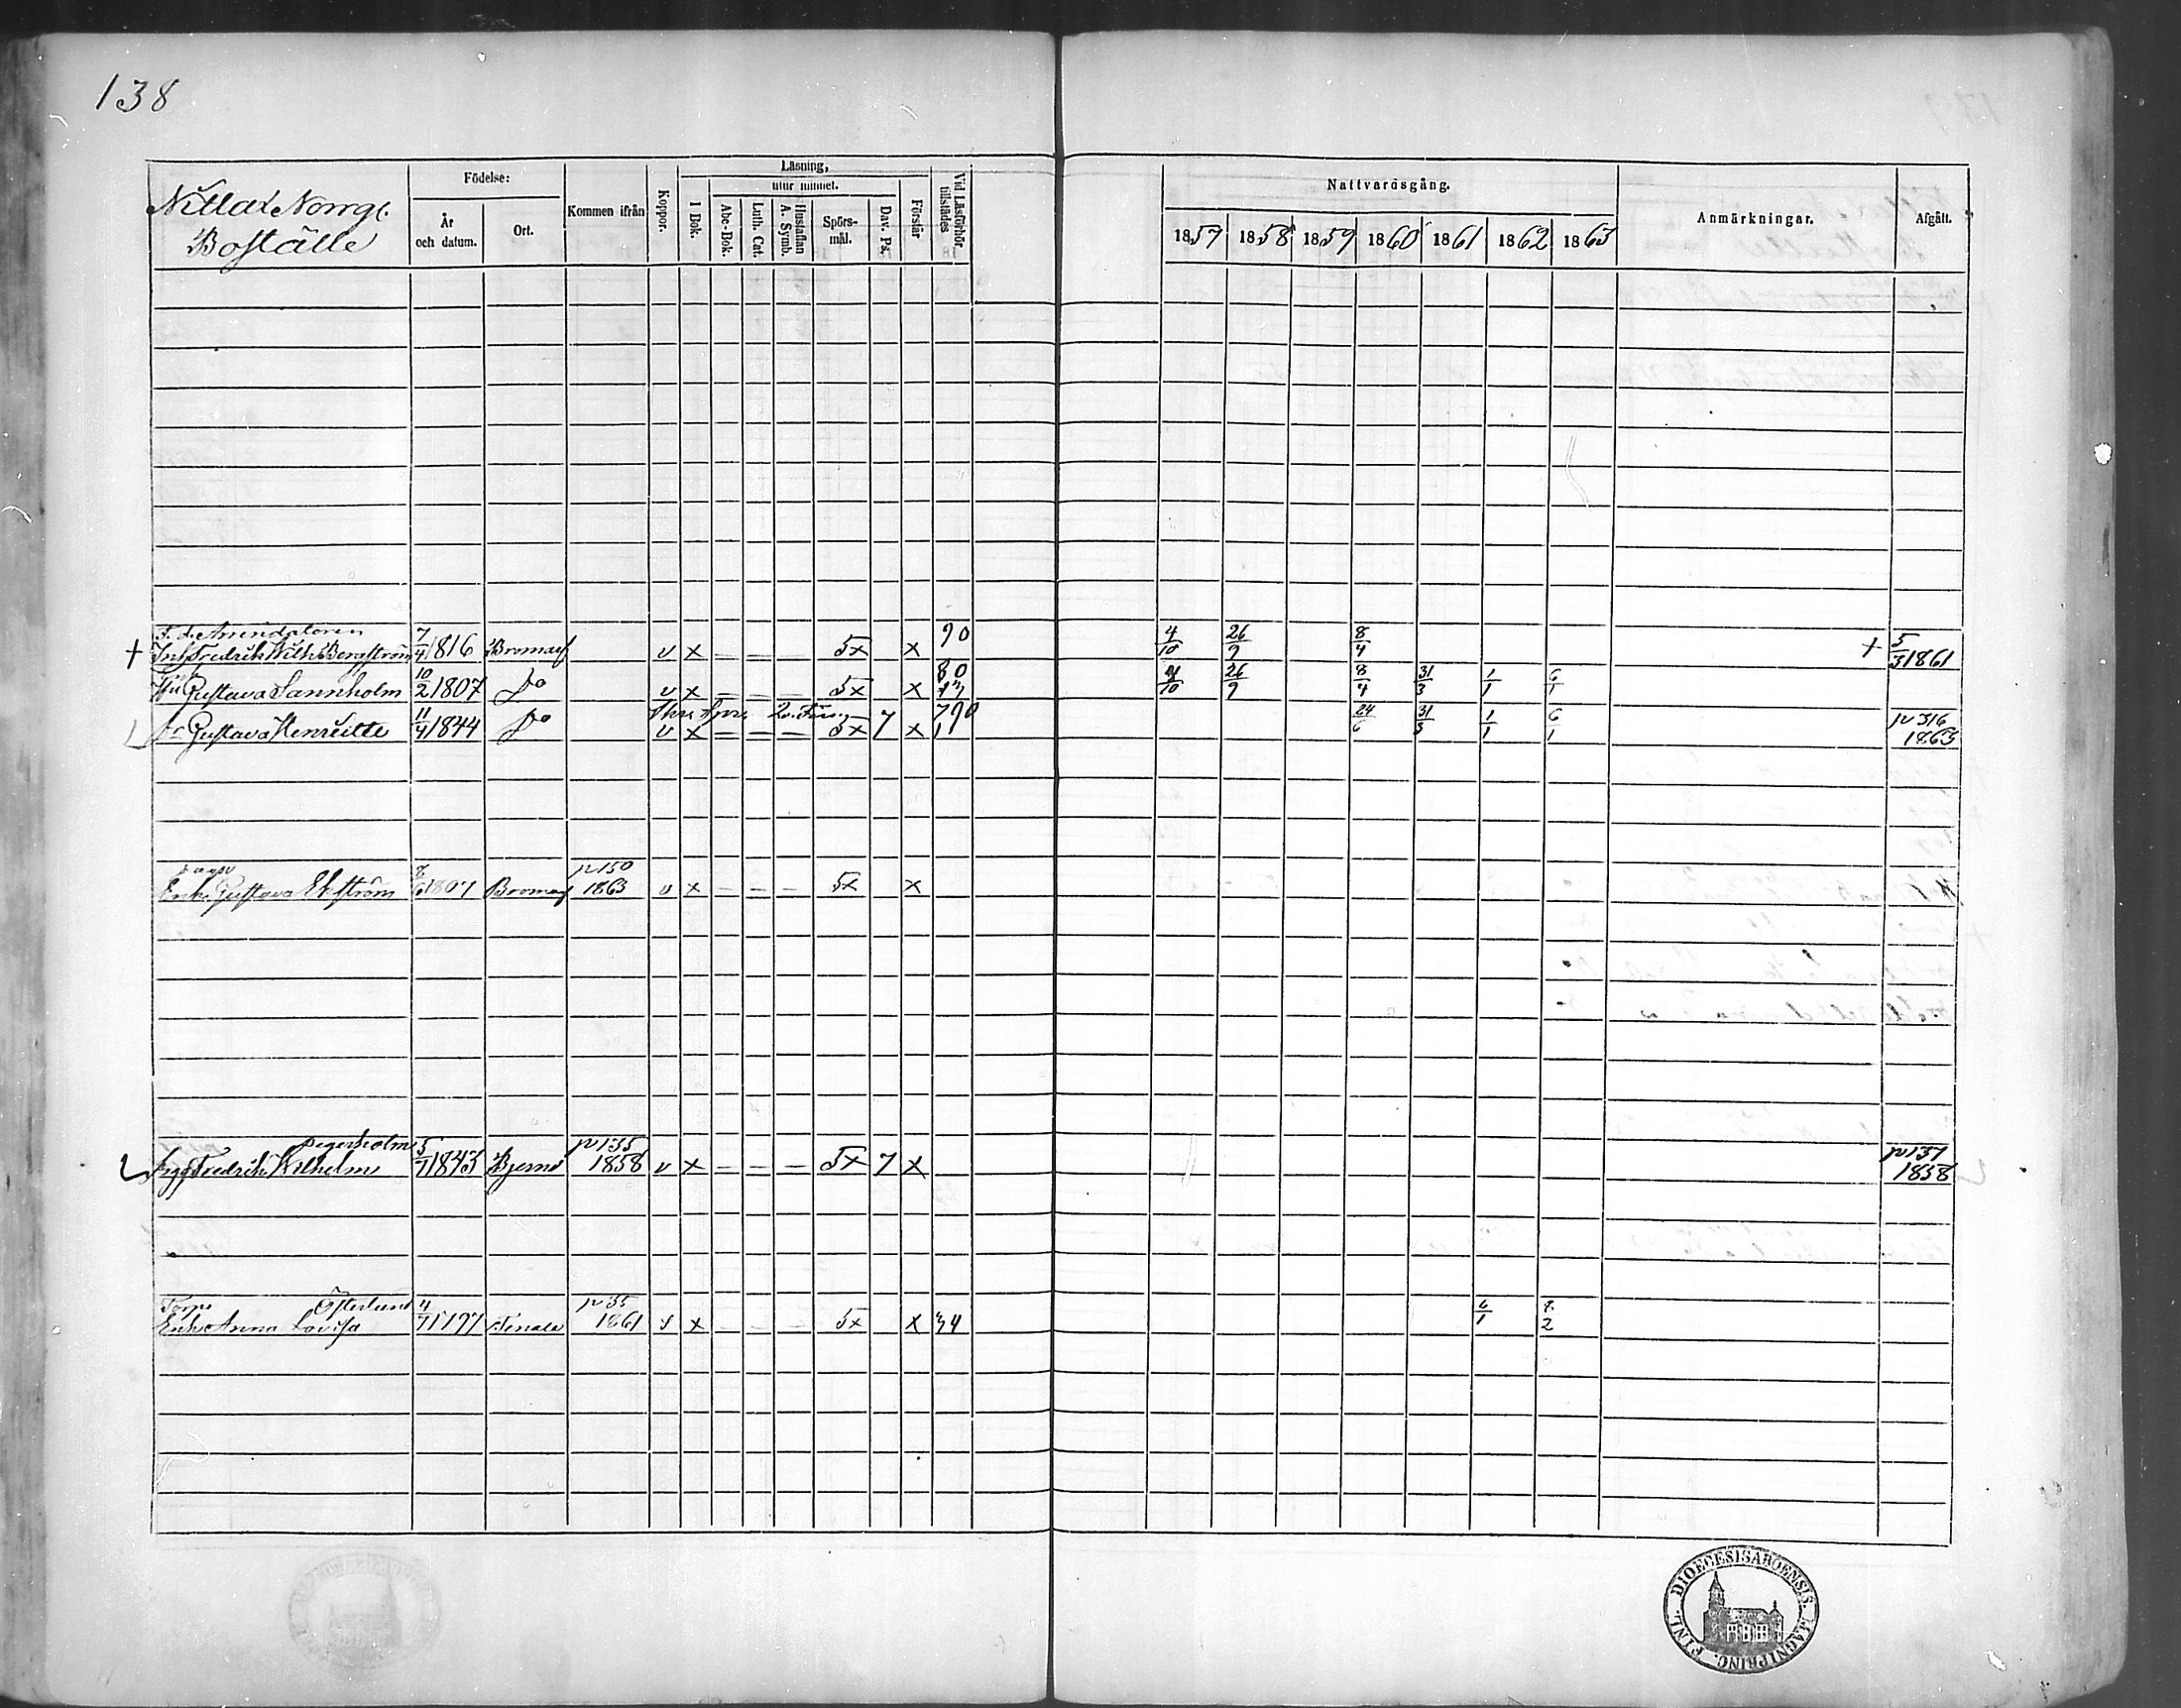 138
Norrg.
Boställe
Födelse:
År och datum.
Ort.
Kommen ifrån
Koppor.
Läsning,
utur minnet.
I Bok.
Abc-Bok.
Luth. Cat.
Hustaflan A. Symb.
Spörs-mål.
Dav. Ps.
Förstår
Vid Läsförhör tillstädes
Nattvardsgång.
1857 1858 1859 1860 1861 1862 1863
Anmärkningar.
Afgått.
F. d. Arrendatoren 7 90 4 26 8 5
+ Fredrik Wilh. Bergström 4 1816 Bromarf v x – – – 5x x 10 9 4 + 3 1861
10 80 4 26 8 31 1 6
Gustava Sannholm 2 1807 Do v x – – – 5x x 10 9 4 3 1 1
11 24 31 1 6 p 316
Gustava Henriette 4 1844 Do v x – – – 5x 7 x 6 3 1 1 1863
8 p 150
Enk. Gustava Ekström 6 1807 Bromarf 1863 v x – – – 5x x
5 p 135 p 137
Fredrik Wilhelm 7 1843 Bjerno 1858 v x – – – 5x 7 x 1858
Österlund 4 p 35 6 8
Enk. Anna Lovisa 7 1797 Tenala 1861 x – – – 5x x 34 1 2
FINL. DIOECESIS ABOENSIS. MAGNI PRINC.